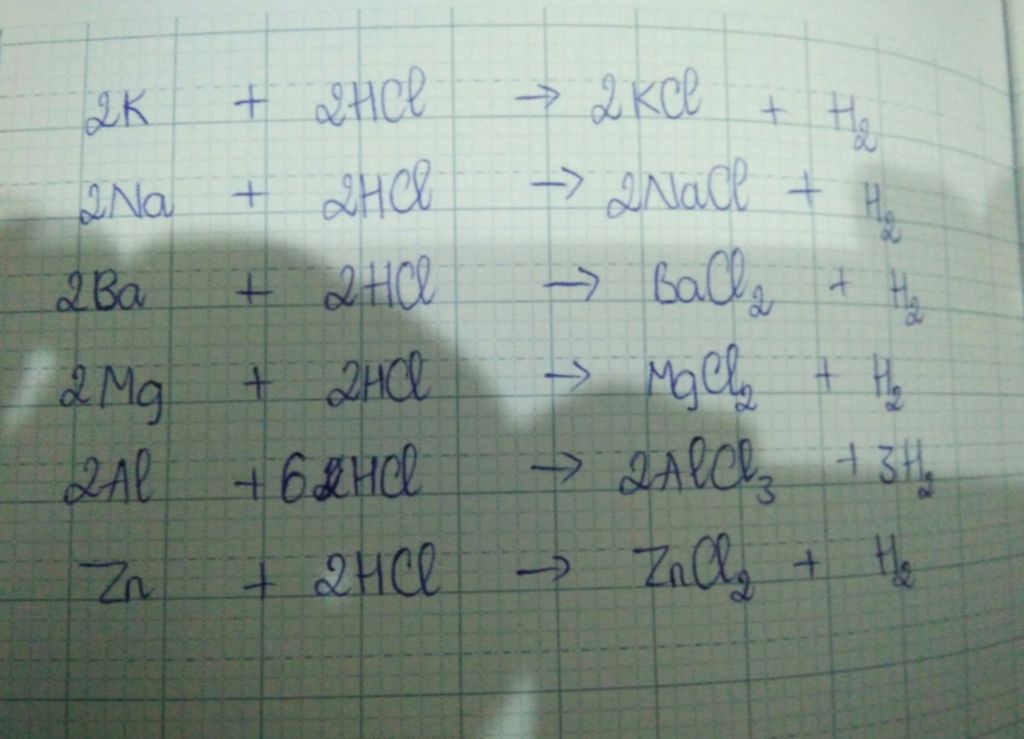 2K + 2HCl → 2KCl + H₂
2Na + 2HCl → 2NaCl + H₂
2Ba + 2HCl → BaCl₂ + H₂
2Mg + 2HCl → MgCl₂ + H₂
2Al + 6HCl → 2AlCl₃ + 3H₂
Zn + 2HCl → ZnCl₂ + H₂